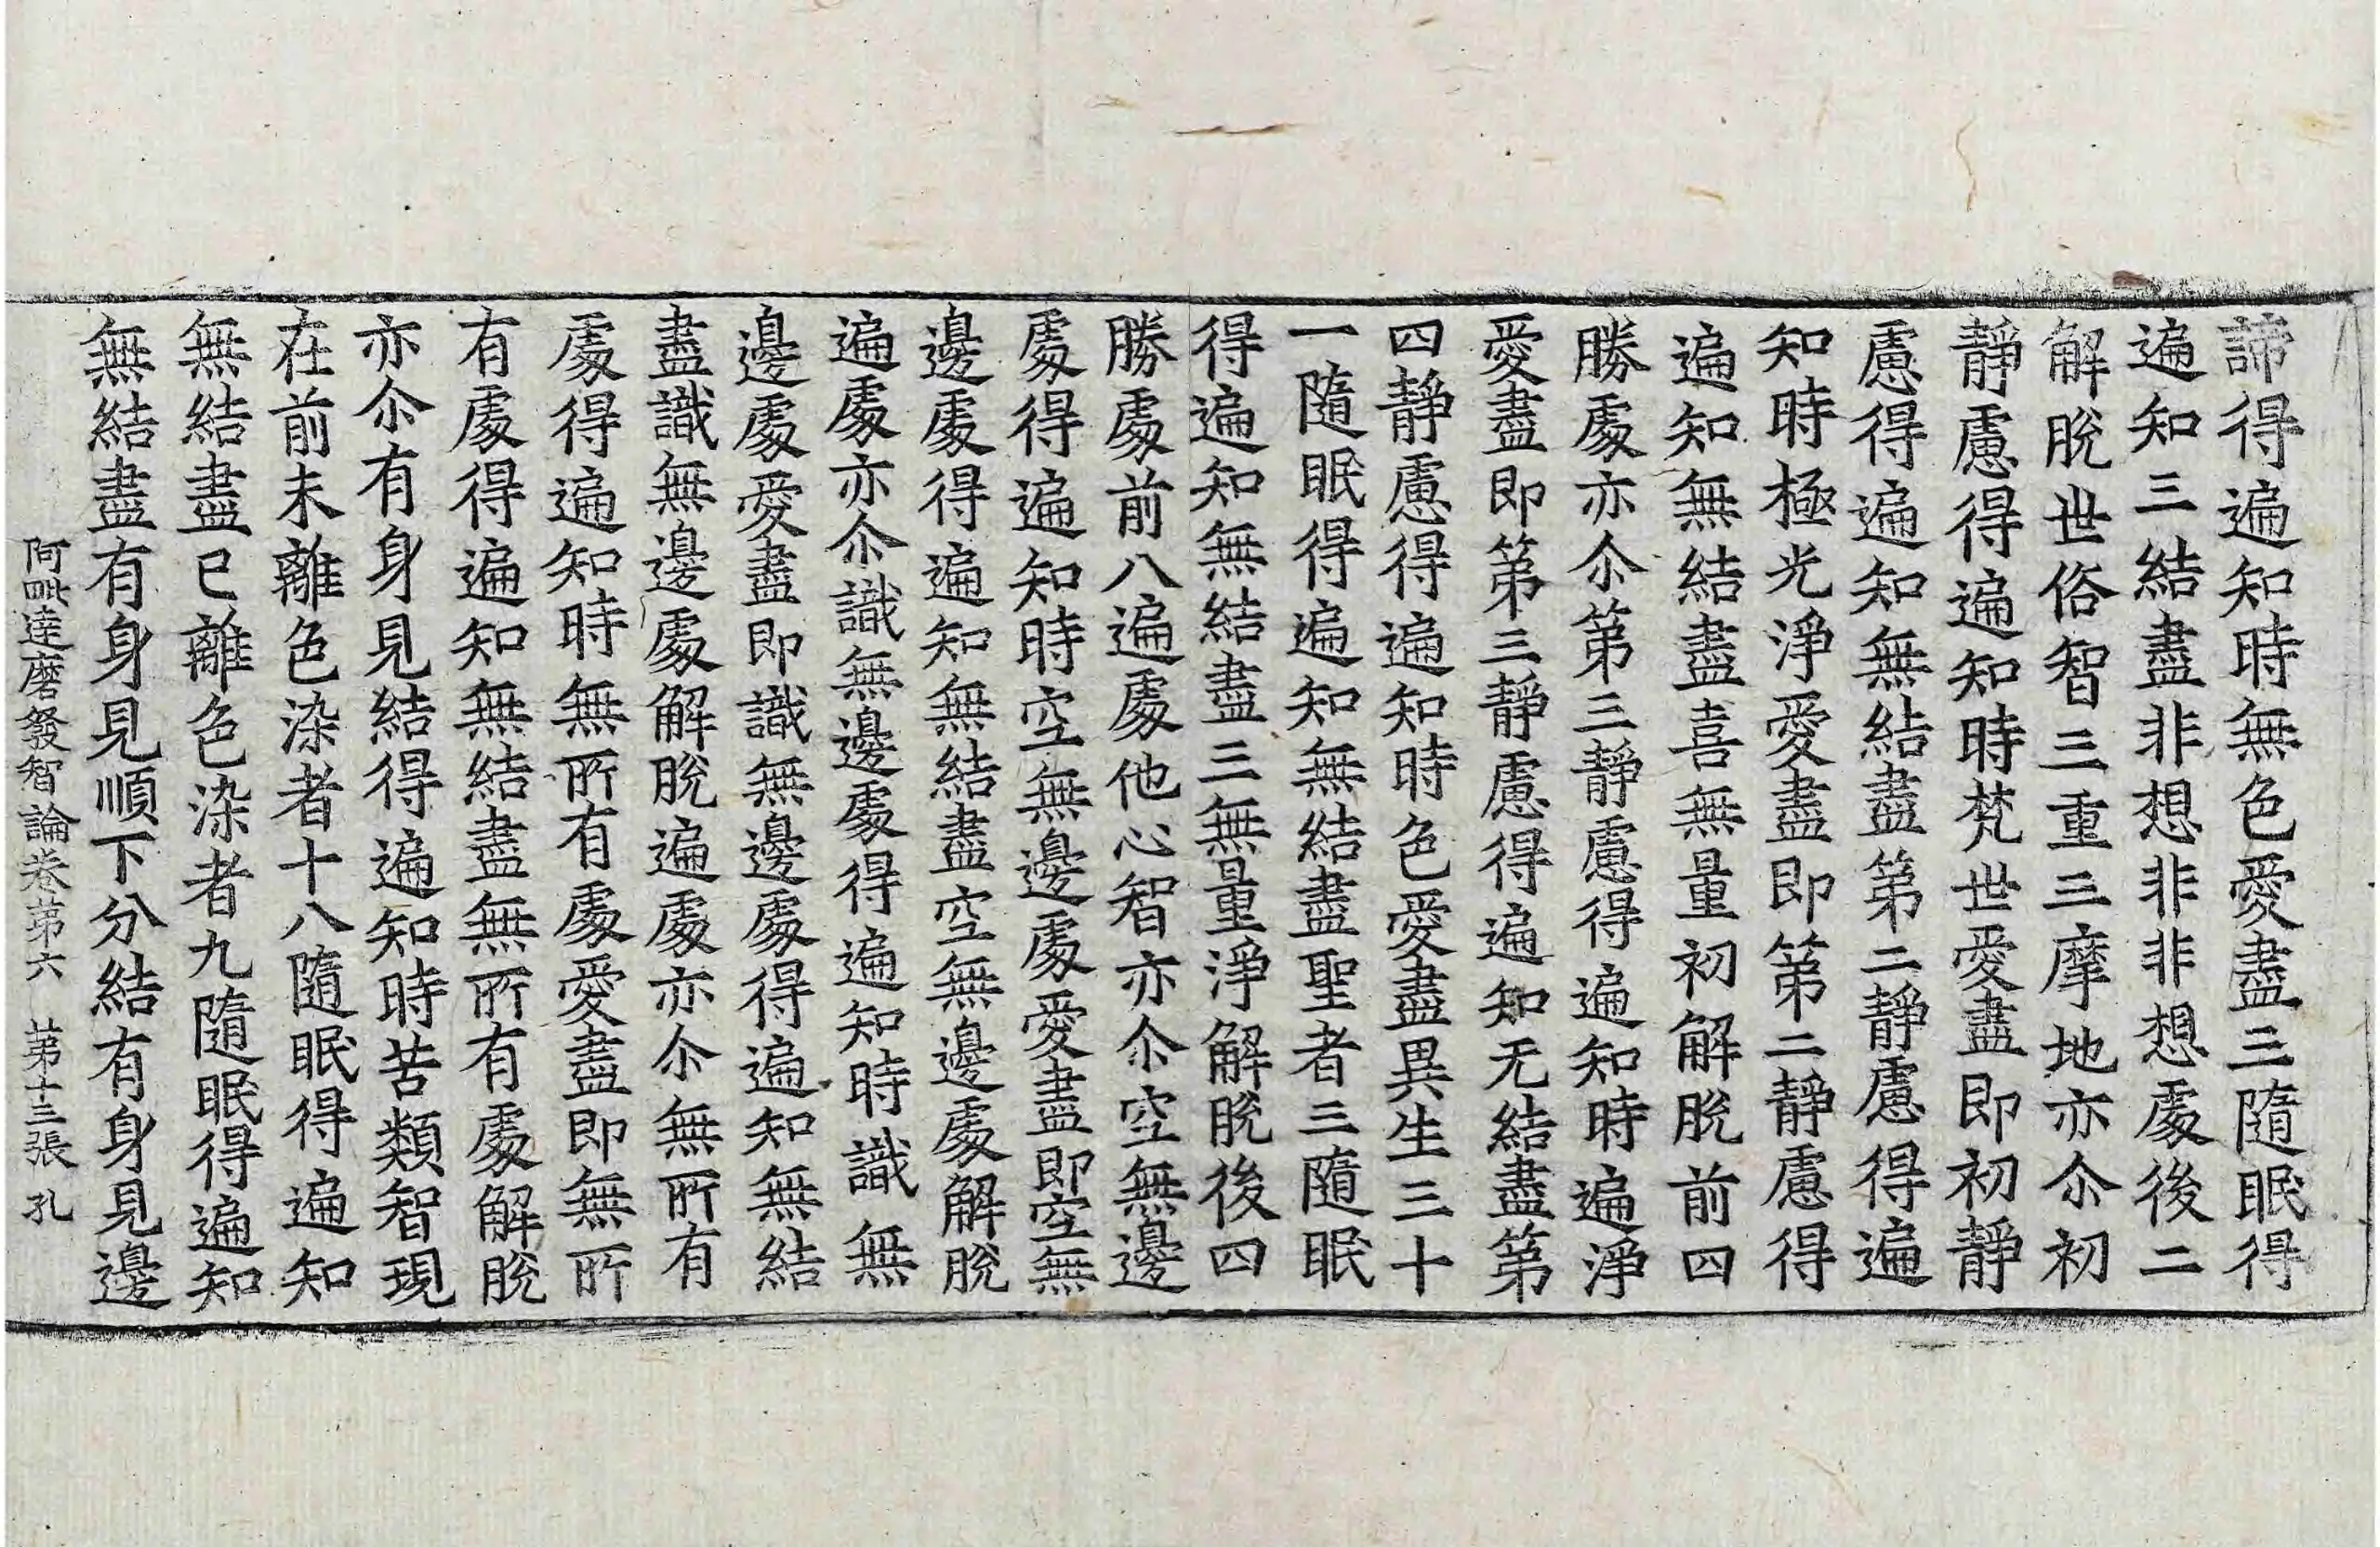 諦得遍知時無色愛盡三隨眠得
遍知三結盡非想非非想處後二
解脫世俗智三重三摩地亦尒初
靜慮得遍知時梵世愛盡即初靜
慮得遍知無結盡第二靜慮得遍
知時極光淨愛盡即第二靜慮得
遍知無結盡喜無量初解脫前四
勝處亦尒第三靜慮得遍知時遍淨
愛盡即第三靜慮得遍知无結盡第
四靜慮得遍知時色愛盡異生三十
一隨眠得遍知無結盡聖者三隨眠
得遍知無結盡三無量淨解脫後四
勝處前八遍處他心智亦尒空無邊
處得遍知時空無邊處愛盡即空無
邊處得遍知無結盡空無邊處解脫
遍處亦尒識無邊處得遍知時識無
邊處愛盡即識無邊處得遍知無結
盡識無邊處解脫遍處亦尒無所有
處得遍知時無所有處愛盡即無所
有處得遍知無結盡無所有處解脫
亦尒有身見結得遍知時苦類智現
在前未離色染者十八隨眠得遍知
無結盡已離色染者九隨眠得遍知
無結盡有身見順下分結有身見邊
阿毗達磨發智論卷第六 第十三張 孔